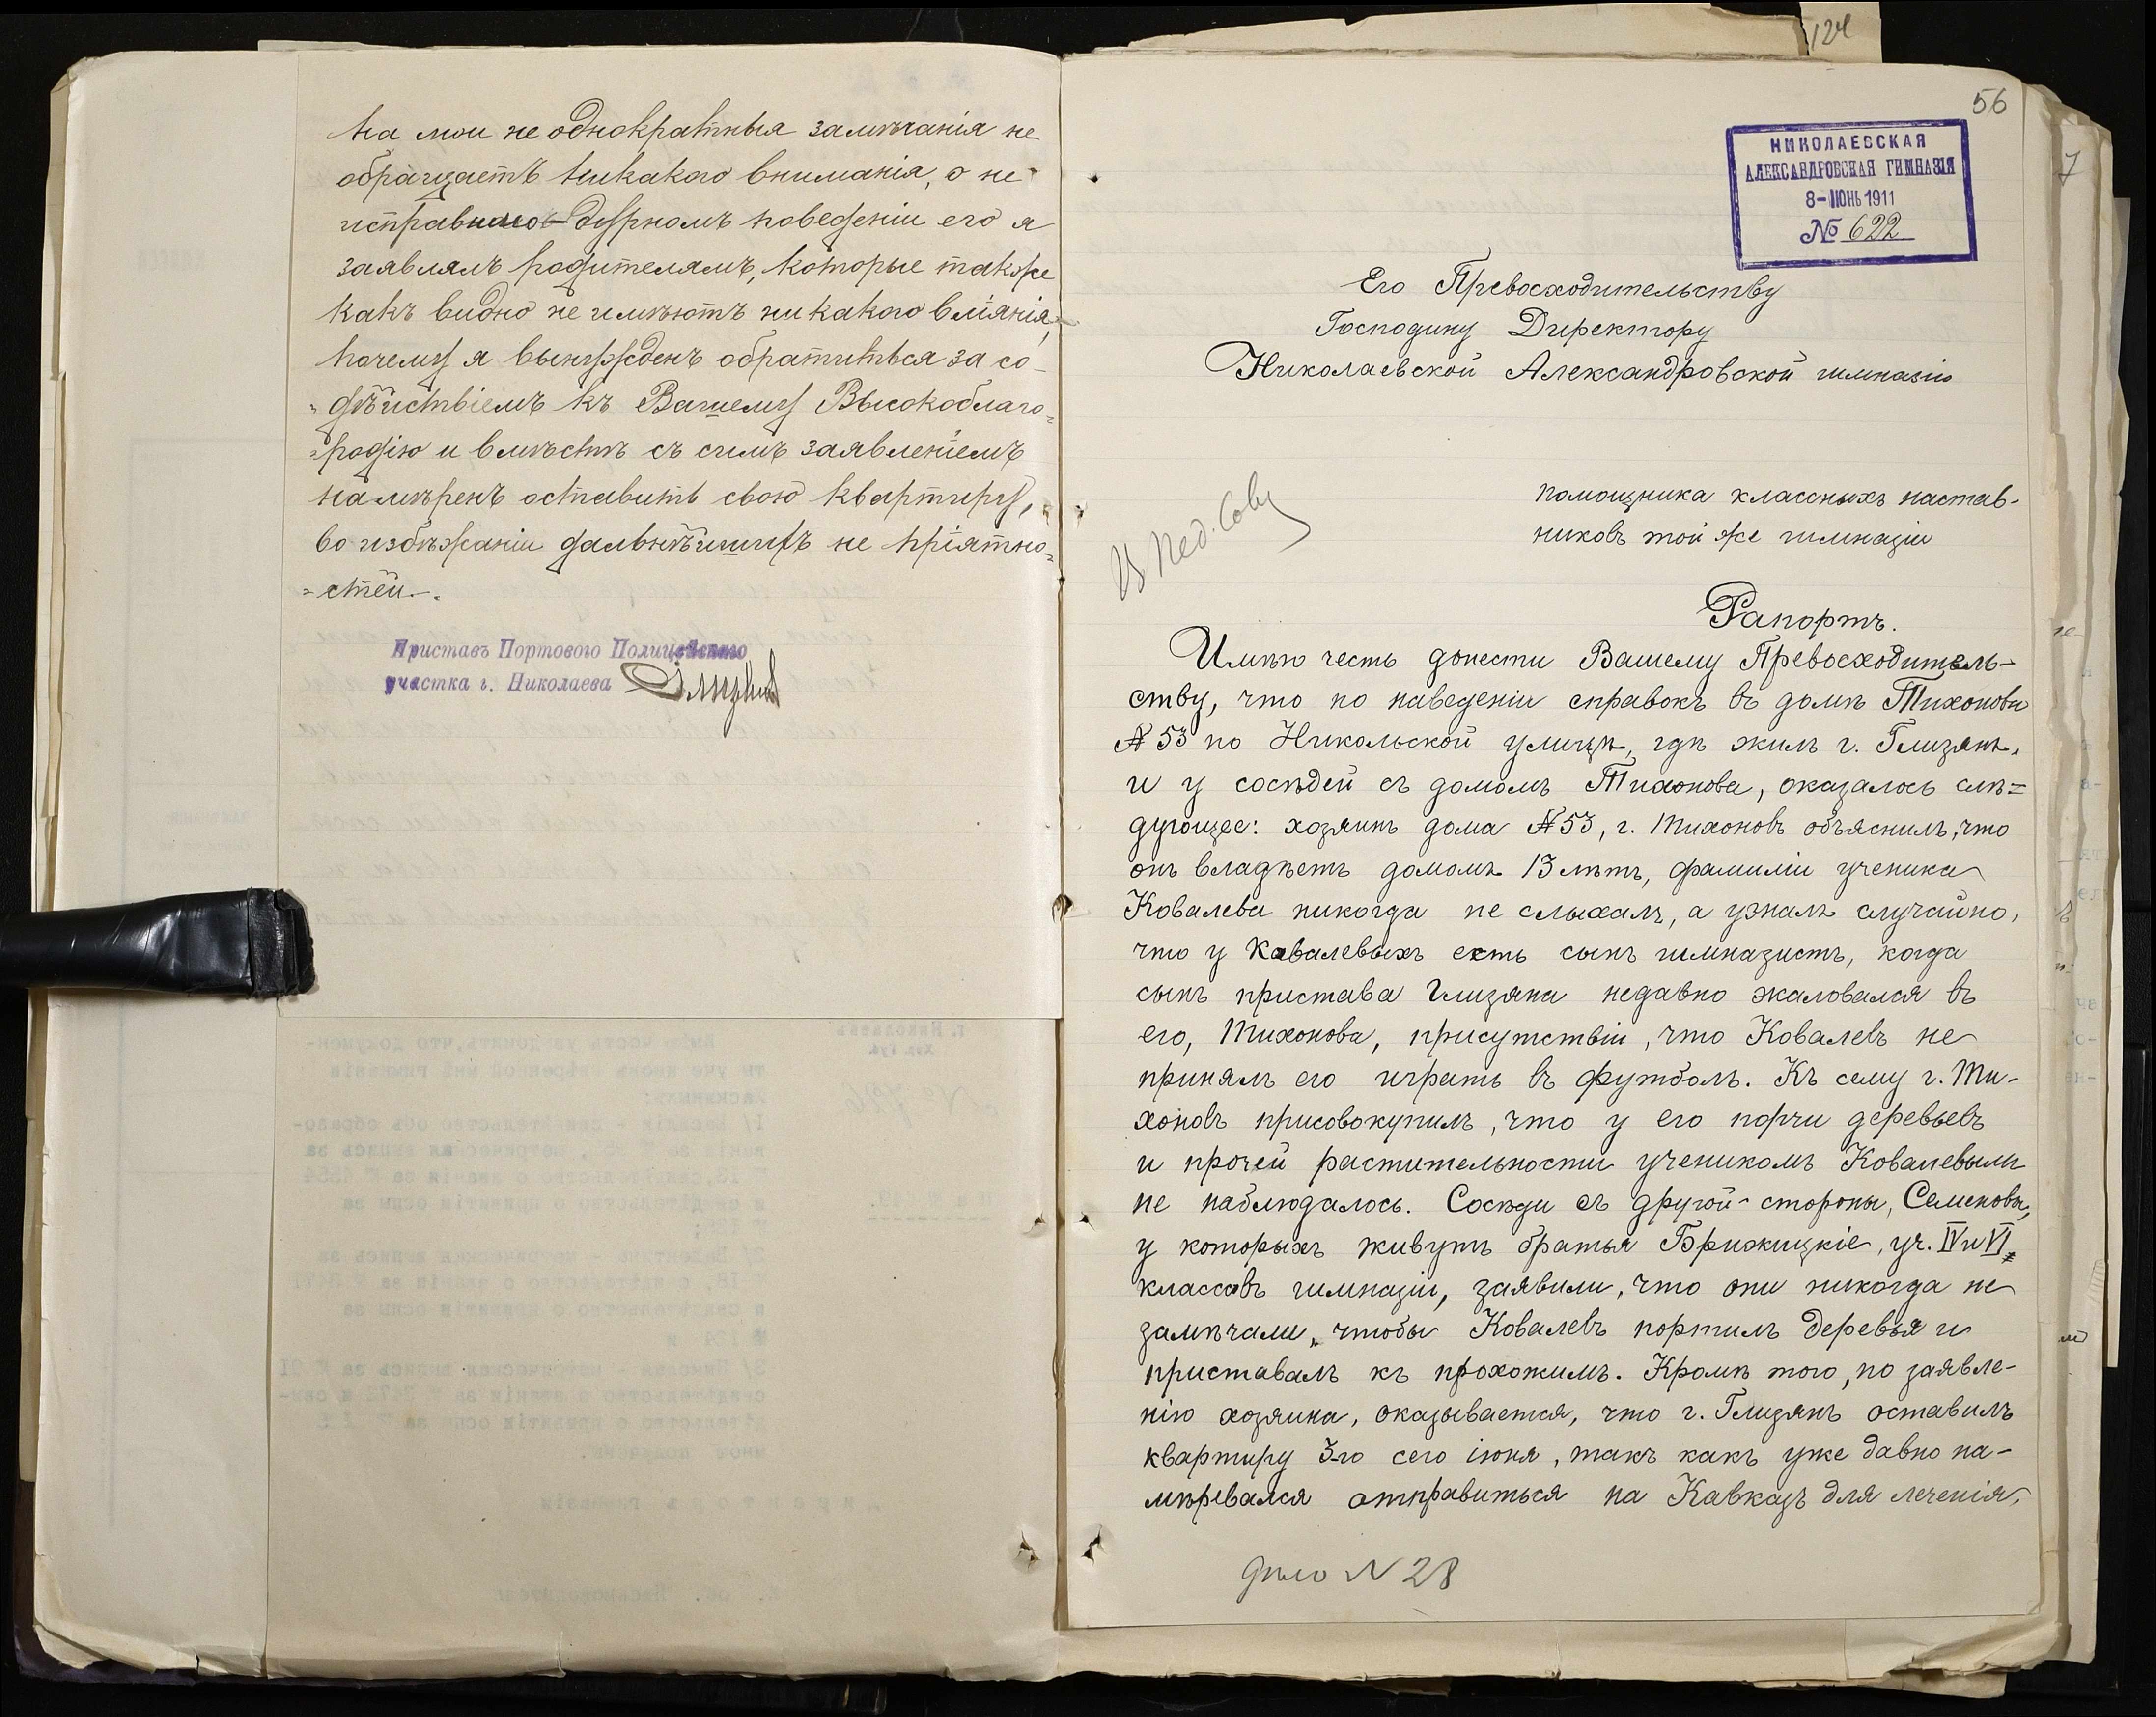 на мои не однократныя замѣчанія не
обращаетъ никакого вниманія, о не
исправно дурномъ поведеніи его я
заявлялъ родителямъ, которые также
какъ видно не имѣютъ ни какого вліянія,
почему я вынужденъ обратиться за со-
дѣйствіемъ къ Вашему Высокоблаго=
=родію и вмѣстѣ съ симъ заявленіемъ
намѣренъ оставить свою квартиру,
во избѣжаніи дальнѣйшихъ не пріятно=
=стей.
Приставъ Портового Полицейскаго
участка г. Николаева
124
56
НИКОЛАЕВСКАЯ
АЛЕКСАНДРОВСКАЯ ГИМНАЗІЯ
8-ІЮНЬ 1911
№ 622
Его Превосходительству
Господину Директору
Николаевской Александровской гимназіи
Въ Пед. Совѣ
помощника классныхъ настав-
никовъ той же гимназіи
Рапортъ.
Имѣю честь донести Вашему Превосходитель-
ству, что по наведеніи справокъ въ домѣ Тихонова
№ 53 по Никольской улицѣ, гдѣ жилъ г. Глизянъ,
и у сосѣдей съ домомъ Тихонова, оказалось слѣ=
дующее: хозяинъ дома № 53, г. Тихоновъ объяснилъ, что
онъ владѣетъ домомъ 13 лѣтъ, фамиліи ученика
Ковалева никогда не слыхалъ, а узналъ случайно,
что у Ковалевыхъ есть сынъ гимназистъ, когда
сынъ пристава Глизяна недавно жаловался въ
его, Тихонова, присутствіи, что Ковалевъ не
принялъ его играть въ футболъ. Къ сему г. Ти-
хоновъ присовокупилъ, что у его порчи деревьевъ
и прочей растительности ученикомъ Ковалевымъ
не наблюдалось. Сосѣди съ другой стороны, Семеновы,
у которыхъ живутъ братья Брижицкіе, уч. IV и VI
классовъ гимназіи, заявили, что они никогда не
замѣчали, чтобы Ковалевъ портилъ деревья и
приставалъ къ прохожимъ. Кромѣ того, по заявле-
нію хозяина, оказывается, что г. Глизянъ оставилъ
квартиру 3-го сего іюня, такъ какъ уже давно на-
мѣревался отправиться на Кавказъ для леченія,
дѣло N 28